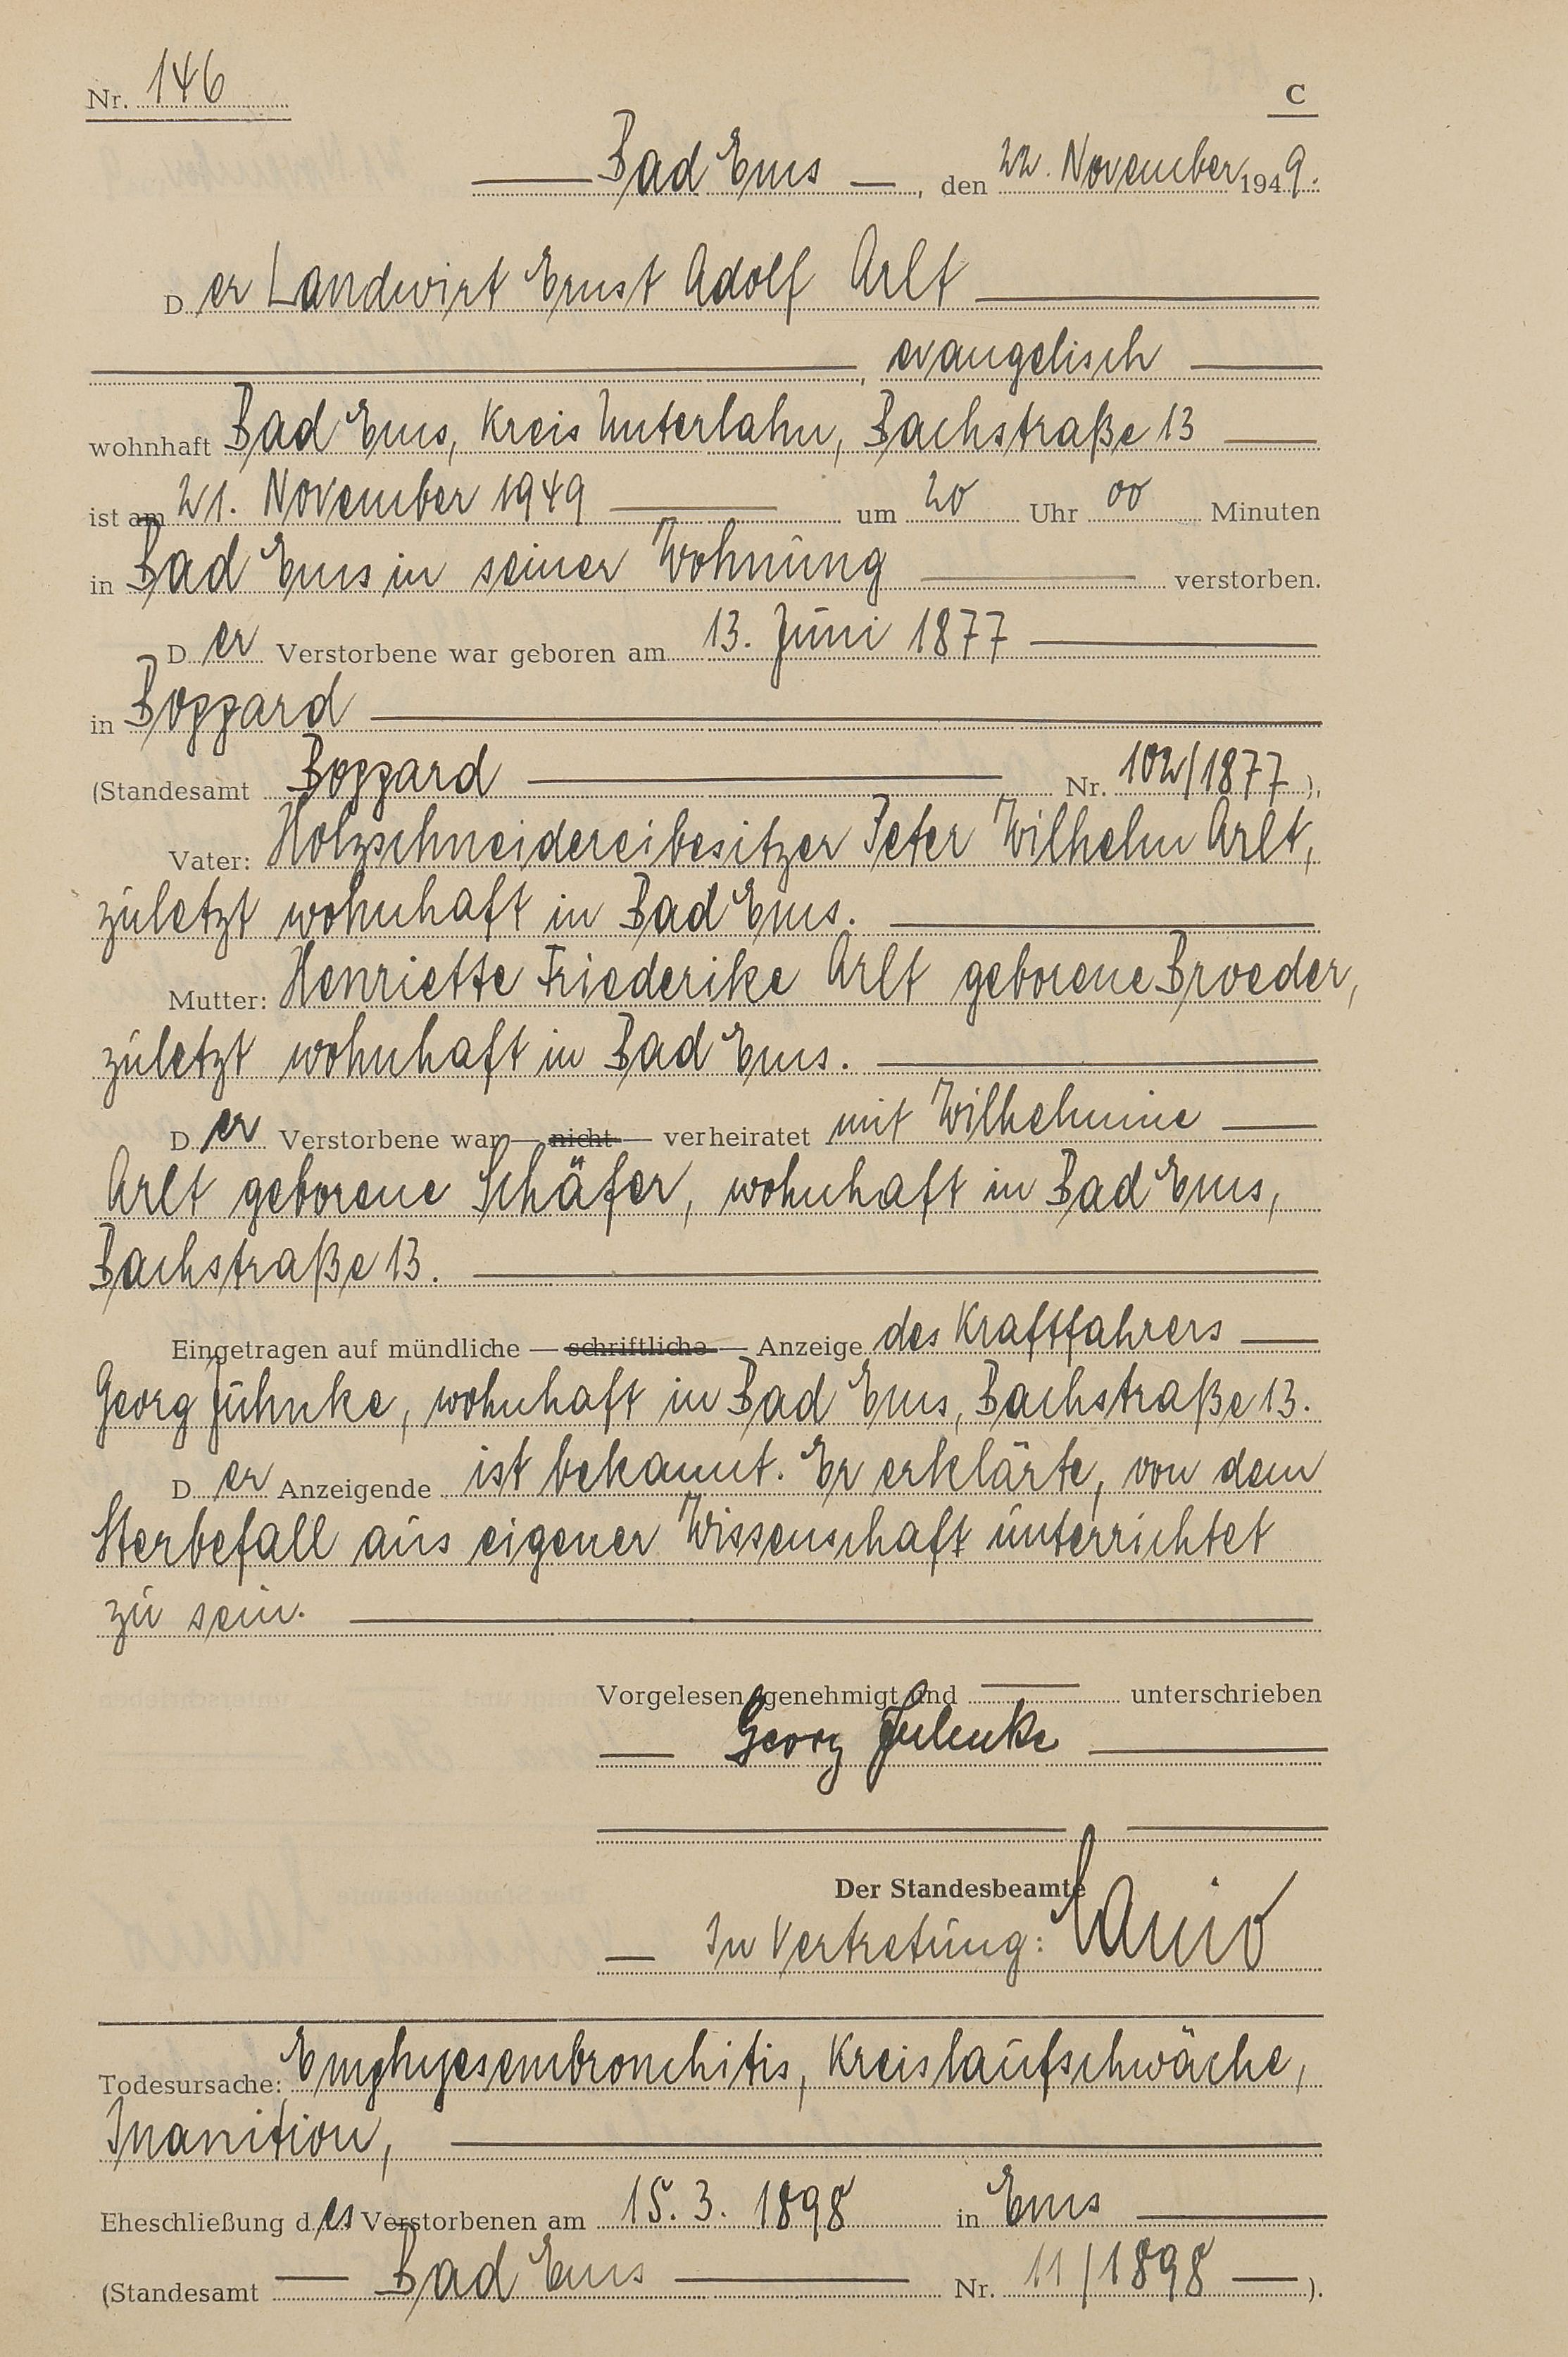 Nr. 146
C
Bad Ems, den 22. November 1949.
Der Landwirt Ernst Adolf Arlt
, evangelisch
wohnhaft Bad Ems, Kreis Unterlahn, Bachstraße 13
ist am 21. November 1949 um 20 Uhr 00 Minuten
in Bad Ems in seiner Wohnung verstorben.
Der Verstorbene war geboren am 13. Juni 1877
in Boppard
(Standesamt Boppard Nr. 102/1877),
Vater: Holzschneidereibesitzer Peter Wilhelm Arlt,
zuletzt wohnhaft in Bad Ems.
Mutter: Henriette Friederike Arlt geborene Broeder,
zuletzt wohnhaft in Bad Ems.
Der Verstorbene war — nicht — verheiratet mit Wilhelmine
Arlt geborene Schäfer, wohnhaft in Bad Ems,
Bachstraße 13.
Eingetragen auf mündliche — schriftliche — Anzeige des Kraftfahrers
Georg Juhnke, wohnhaft in Bad Ems, Bachstraße 13.
Der Anzeigende ist bekannt. Er erklärte, von dem
Sterbefall aus eigener Wissenschaft unterrichtet
zu sein.
Vorgelesen, genehmigt und unterschrieben
Georg Juhnke
Der Standesbeamte
In Vertretung:
Todesursache: Emphysembronchitis, Kreislaufschwäche,
Inanition,
Eheschließung des Verstorbenen am 15.3.1898 in Ems
(Standesamt Bad Ems Nr. 11/1898).